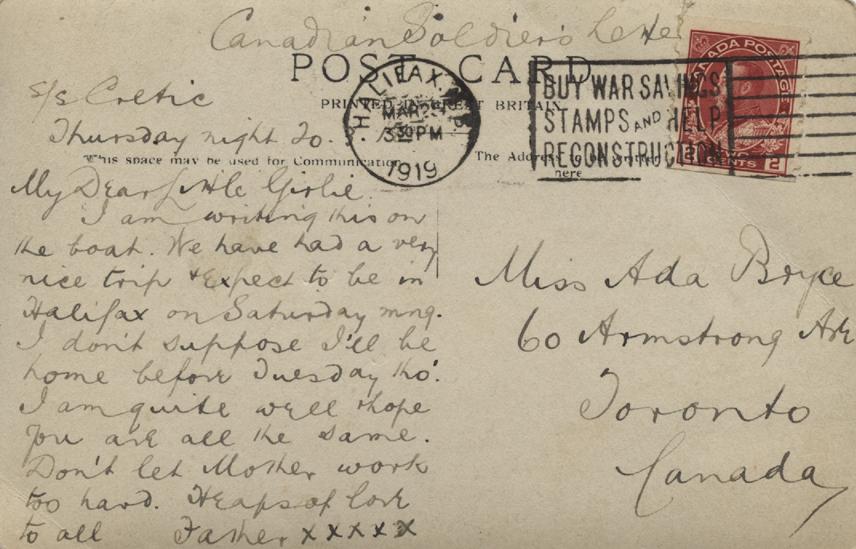 Canadian Soldier's Letter
POST CARD
PRINTED IN GREAT BRITAIN
HALIFAX, N.S.
MAR 22
3 30 PM
1919
BUY WAR SAVINGS
STAMPS AND HELP
RECONSTRUCTION
CANADA POSTAGE
2 CENTS 2
This space may be used for Communication
The Address to be written
here
S/S Cretic
Thursday night 20.
My Dear Little Girlie.
I am writing this on
the boat. We have had a very
nice trip & Expect to be in
Halifax on Saturday mng.
I don't suppose I'll be
home before Tuesday tho'.
I am quite well & hope
you are all the same.
Don't let Mother work
too hard. Heaps of love
to all Father x x x x x
Miss Ada Bryce
60 Armstrong Ave
Toronto
Canada